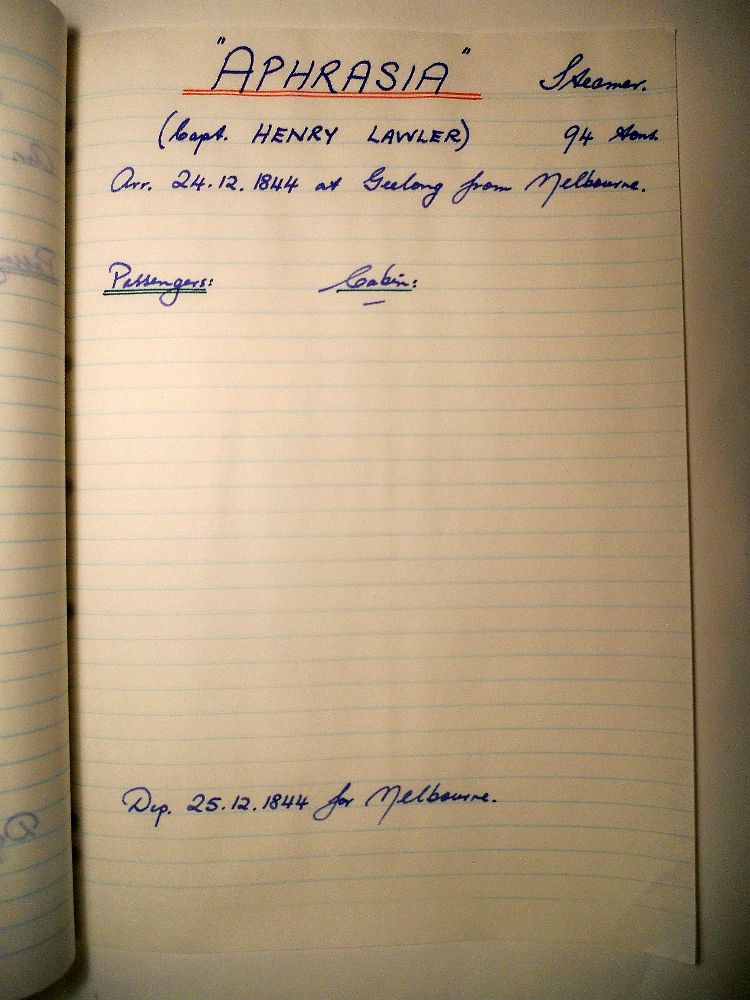 "APHRASIA" Steamer.
(Capt. HENRY LAWLER) 94 tons.
Arr. 24.12.1844 at Geelong from Melbourne.
Passengers: Cabin:
Dep. 25.12.1844 for Melbourne.